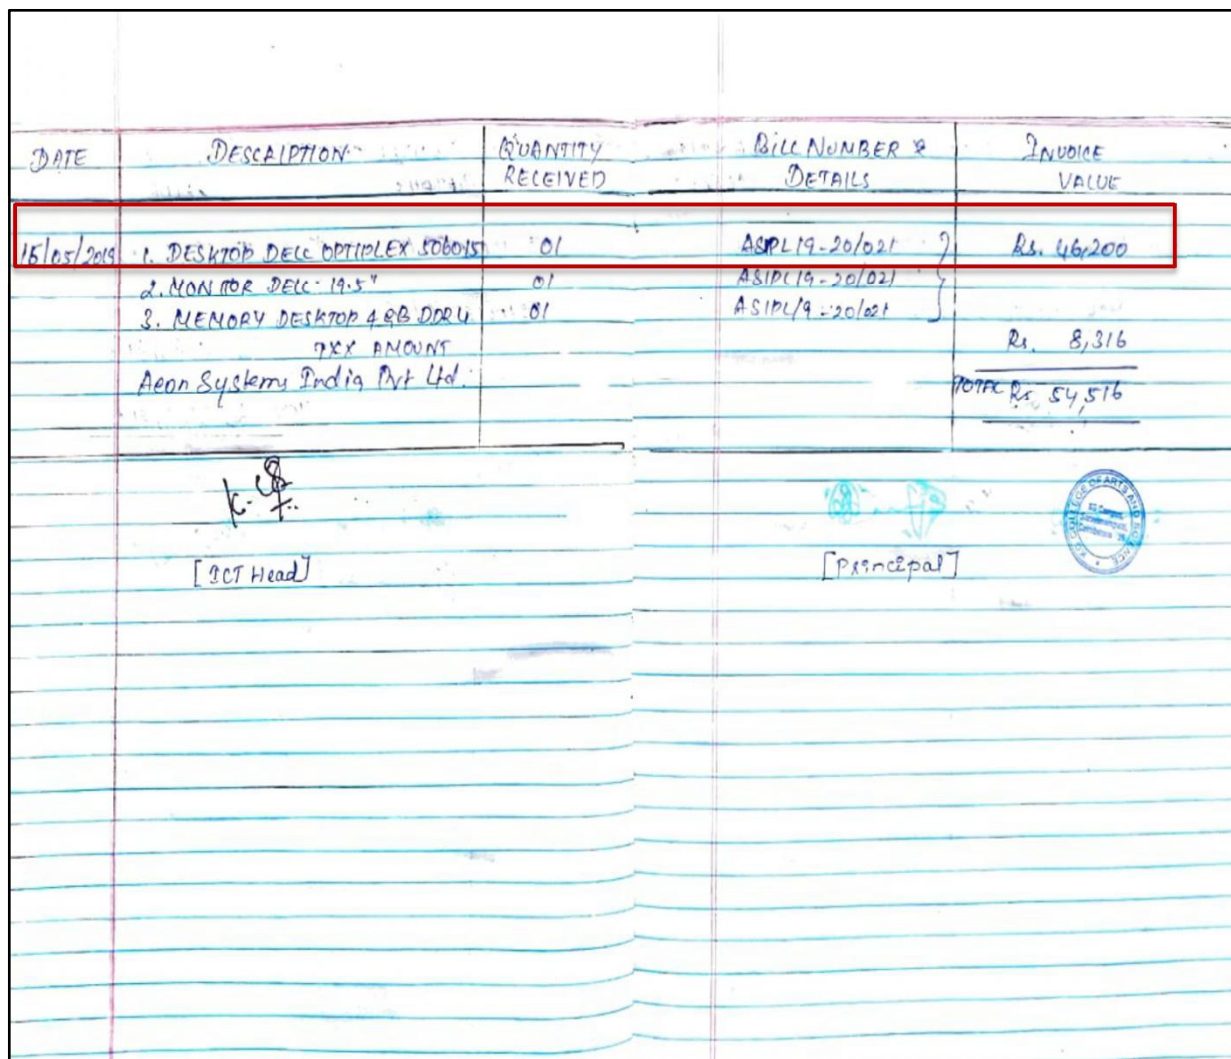 DATE DESCRIPTION QUANTITY RECEIVED BILL NUMBER & DETAILS INVOICE VALUE
15/05/2019 1. DESKTOP DELL OPTIPLEX 5060i5 01 ASIPL19-20/021 Rs. 46,200
2. MONITOR DELL 19.5" 01 ASIPL19-20/021
3. MEMORY DESKTOP 4GB DDR4 01 ASIPL19-20/021
TAX AMOUNT Rs. 8,316
Aeon Systems India Pvt Ltd. TOTAL Rs 54,516
[ICT Head] [Principal]
KG COLLEGE OF ARTS AND SCIENCE
KG Campus,
Saravanampatti,
Coimbatore